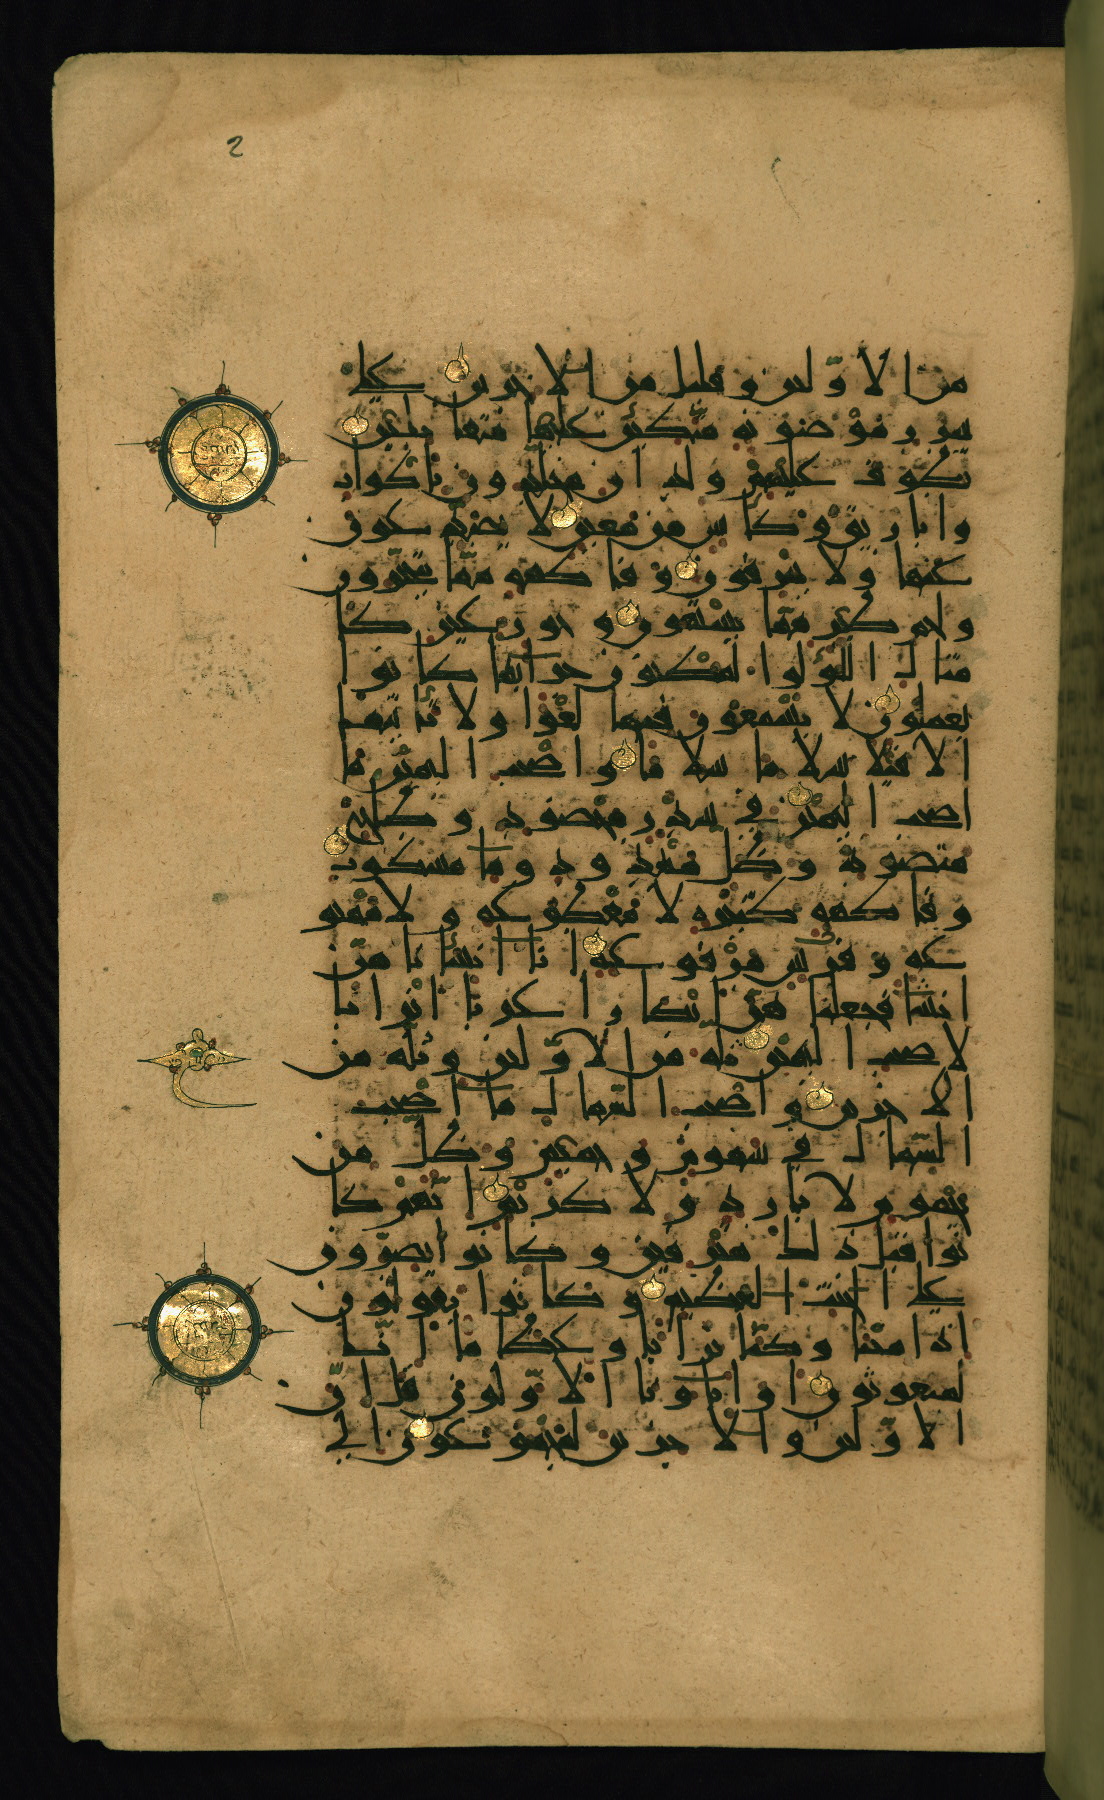 2
من الاولين وقليل من الاخرين على
سرر موضونة متكئين عليها متقابلين
يطوف عليهم ولدان مخلدون باكواب
واباريق وكاس من معين لا يصدعون
عنها ولا ينزفون وفاكهة مما يتخيرون
ولحم طير مما يشتهون وحور عين كا
مثال اللؤلؤا لمكنون جزاء بما كانوا
يعملون لا يسمعون فيها لغوا ولا تاثيما
الا قيلا سلاما سلاما واصحب اليمين ما
اصحب اليمين في سدر مخضود وطلح
منضود وظل ممدود وماء مسكوب
وفاكهة كثيرة لا مقطوعة ولا ممنو
عة وفرش مرفوعة انا انشانا هن
انشاء فجعلنا هن ابكارا عربا اترابا
لاصحب اليمين ثلة من الاولين وثلة من
الاخرين واصحب الشمال ما اصحب
الشمال في سموم وحميم وظل من
يحموم لا بارد ولا كريم انهم كا
نوا قبل ذلك مترفين وكانوا يصرون
على الحنث العظيم وكانوا يقولون
ائذا متنا وكنا ترابا وعظاما ائنا
لمبعوثون اواباونا الاولون قل ان
الاولين والاخرين لمجموعون الى